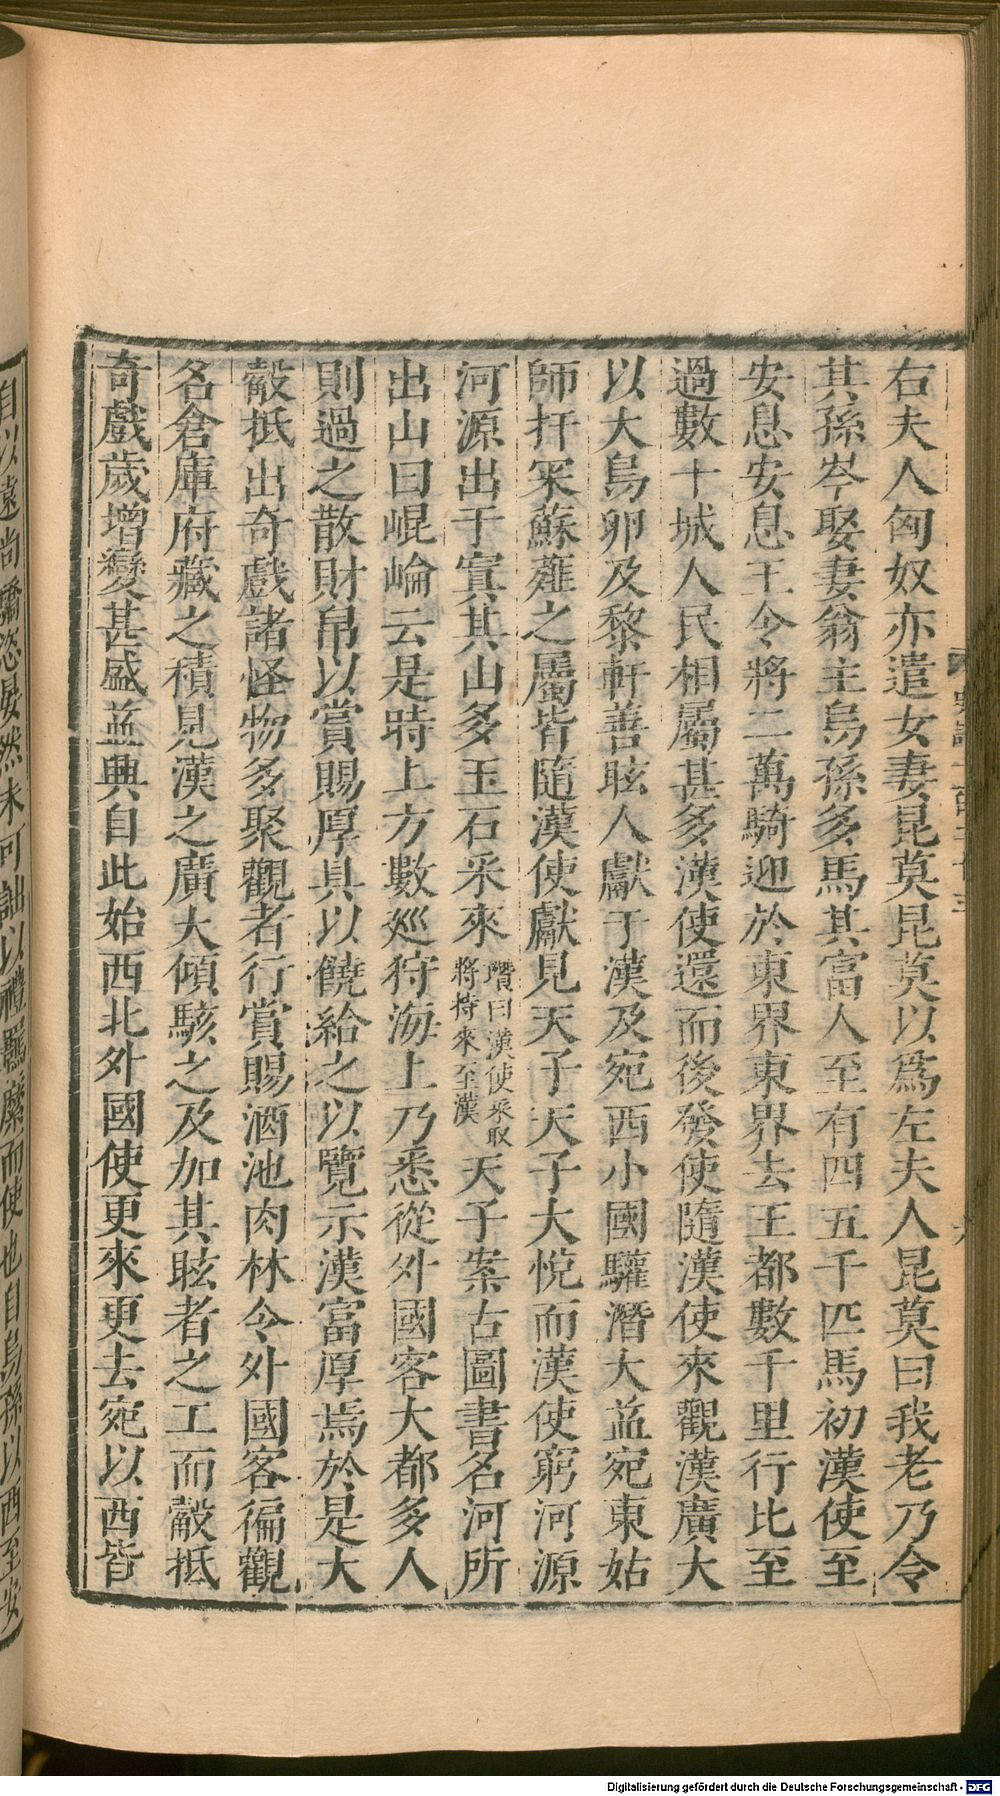 右夫人匈奴亦遣女妻昆莫昆莫以爲左夫人昆莫曰我老乃令
其孫岑娶妻翁主烏孫多馬其富人至有四五千匹馬初漢使至
安息安息王令將二萬騎迎於東界東界去王都數千里行比至
過數十城人民相屬甚多漢使還而後發使隨漢使來觀漢廣大
以大鳥卵及黎軒善眩人獻于漢及宛西小國驩潛大益宛東姑
師扜罙蘇薤之屬皆隨漢使獻見天子天子大悅而漢使窮河源
河源出于窴其山多玉石采來
瓚曰漢使采取
將持來至漢
天子案古圖書名河所
出山曰崐崘云是時上方數巡狩海上乃悉從外國客大都多人
則過之散財帛以賞賜厚具以饒給之以覽示漢富厚焉於是大
觳抵出奇戲諸怪物多聚觀者行賞賜酒池肉林令外國客徧觀
名倉庫府藏之積見漢之廣大傾駭之及加其眩者之工而觳抵
奇戲歲增變甚盛益興自此始西北外國使更來更去宛以西皆
自以遠尚驕恣晏然未可詘以禮羈縻而使也自烏孫以西至安
Digitalisierung gefördert durch die Deutsche Forschungsgemeinschaft - DFG